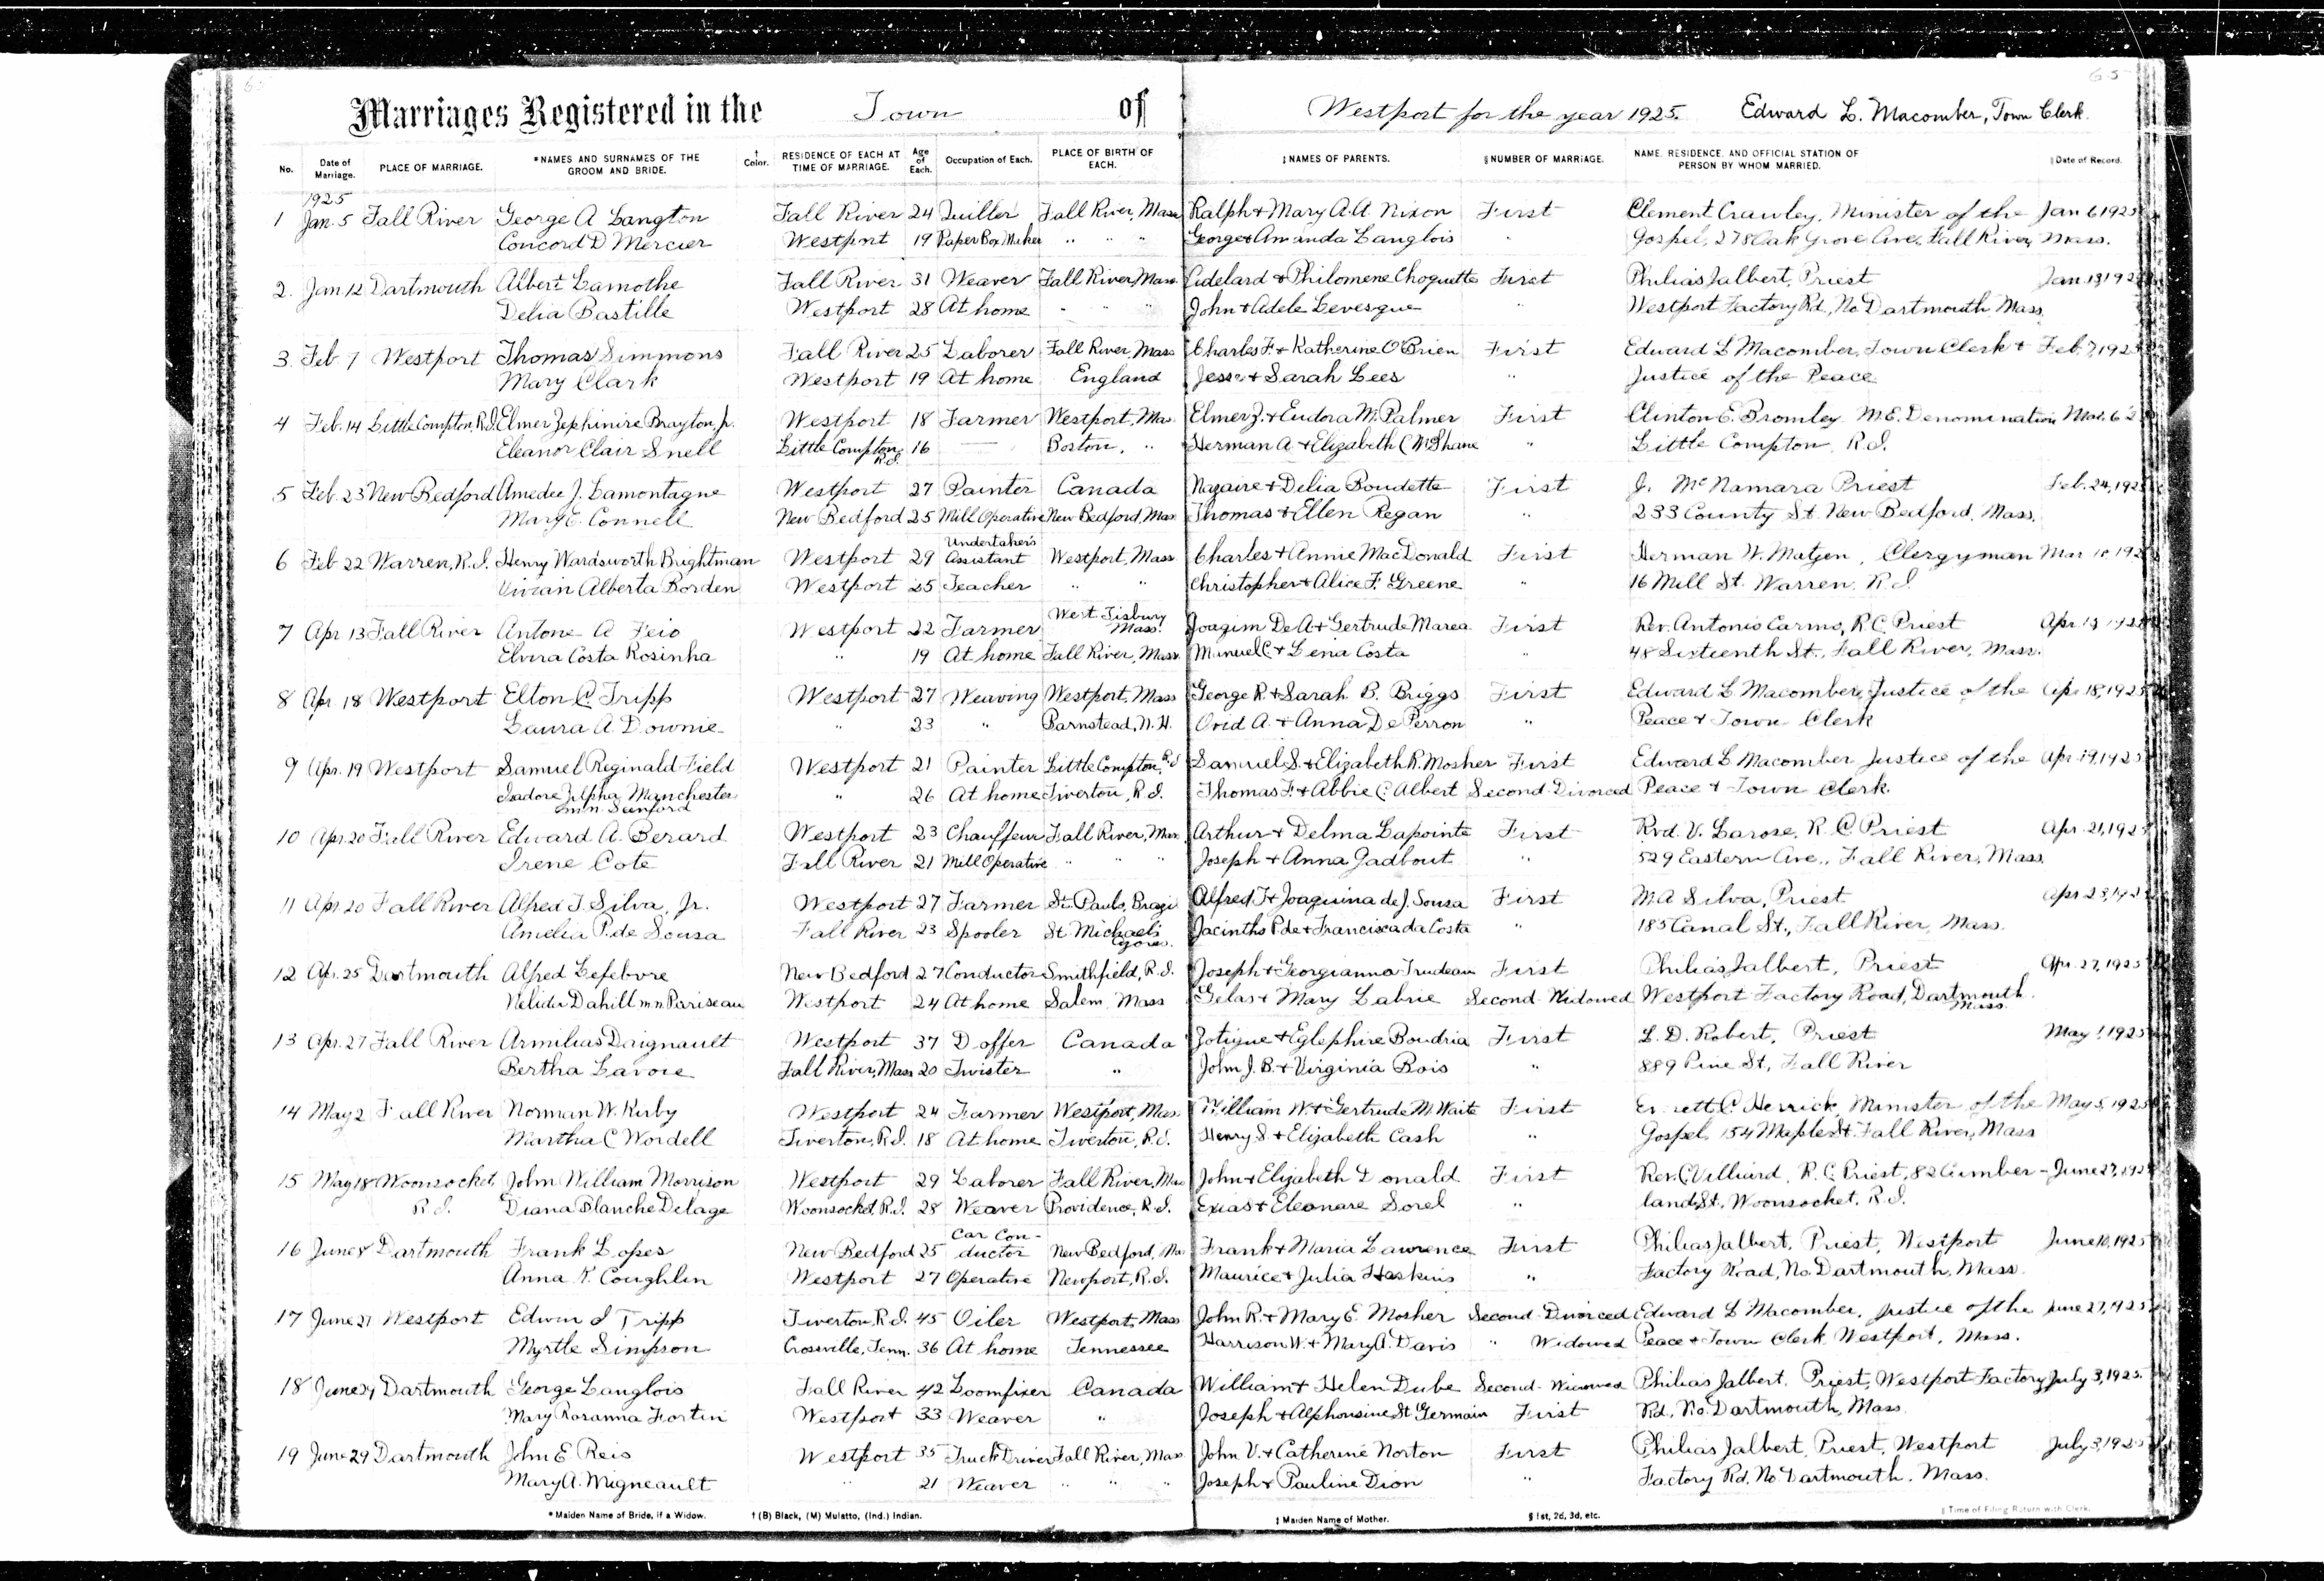 65
Marriages Registered in the Town of Westport for the year 1925. Edward L. Macomber, Town Clerk.
No. Date of Marriage. PLACE OF MARRIAGE. *NAMES AND SURNAMES OF THE GROOM AND BRIDE. † Color. RESIDENCE OF EACH AT TIME OF MARRIAGE. Age of Each. Occupation of Each. PLACE OF BIRTH OF EACH. ‡NAMES OF PARENTS. §NUMBER OF MARRIAGE. NAME, RESIDENCE, AND OFFICIAL STATION OF PERSON BY WHOM MARRIED. ‖Date of Record.
1925
1 Jan. 5 Fall River George A Langton Fall River 24 Quiller Fall River, Mass Ralph + Mary A.A. Nixon First Clement Crawley, Minister of the Jan 6 1925
Concord D Mercier Westport 19 Paper Box Maker " " " George + Amanda Langlois " Gospel, 278 Oak Grove Ave, Fall River, Mass.
2. Jan 12 Dartmouth Albert Lamothe Fall River 31 Weaver Fall River, Mass. Adelard + Philomene Choquette First Philias Jalbert, Priest Jan. 13 192
Delia Bastille Westport 28 At home " " " John + Adele Levesque " Westport Factory Rd., No Dartmouth Mass
3. Feb. 7 Westport Thomas Simmons Fall River 25 Laborer Fall River, Mass Charles F. + Katherine O'Brien First Edward L Macomber, Town Clerk + Feb. 7, 1925
Mary Clark Westport 19 At home England Jesse + Sarah Lees " Justice of the Peace
4 Feb. 14 Little Compton, R.I. Elmer Zephinire Brayton, Jr. Westport 18 Farmer Westport, Mas. Elmer Z. + Eudora M. Palmer First Clinton E. Bromley M.E. Denomination Mar. 6 2
Eleanor Clair Snell Little Compton, R.I. 16 — Boston, " Herman A + Elizabeth C McShane " Little Compton, R.I.
5 Feb. 23 New Bedford Amedee J. Lamontagne Westport 27 Painter Canada Nazaire + Delia Boudette First J. McNamara Priest Feb. 24, 192
Mary E. Connell New Bedford 25 Mill Operative New Bedford, Mas Thomas + Ellen Regan " 233 County St. New Bedford, Mass.
6 Feb 22 Warren, R.I. Henry Wardsworth Brightman Westport 29 Undertaker's Assistant Westport, Mass Charles + Annie MacDonald First Herman W. Matzen, Clergyman Mar 192
Vivian Alberta Borden Westport 25 Teacher " " Christopher + Alice F. Greene " 16 Mill St. Warren, R.I.
7 Apr 13 Fall River Antone A Feio Westport 22 Farmer West Tisbury Mass. Joagim De A + Gertrude Marea First Rev. Antonio Carmo, R.C. Priest Apr
Elvira Costa Rosinha " 19 At home Fall River, Mass. Manuel C. + Lena Costa " 48 Sixteenth St., Fall River, Mass.
8 Apr 18 Westport Elton C. Tripp Westport 27 Weaving Westport, Mass George R. + Sarah B. Briggs First Edward L Macomber, Justice of the Apr 18, 1925
Laura A. Downie " 23 " Barnstead, N.H. Ovid A. + Anna De Perron " Peace + Town Clerk
9 Apr. 19 Westport Samuel Reginald Field Westport 21 Painter Little Compton, R.I Samuel S. + Elizabeth R. Mosher First Edward L Macomber Justice of the Apr. 19, 1925
Isadore Zilpha Manchester m.n Sanford " 26 At home Tiverton, R.I. Thomas F. + Abbie C. Albert Second Divorced Peace + Town Clerk.
10 Apr 20 Fall River Edward A. Berard Westport 23 Chauffeur Fall River, Mas. Arthur + Delma Lapointe First Rvd. V. Larose, R.C. Priest Apr. 21, 192
Irene Cote Fall River 21 Mill Operative " " " Joseph + Anna Gadbout " 529 Eastern Ave., Fall River, Mass.
11 Apr 20 Fall River Alfred T. Silva, Jr. Westport 27 Farmer St. Pauls, Brazi Alfred T + Joaquina de J. Sousa First M.A Silva, Priest Apr 23, 192
Amelia P. de Sousa Fall River 23 Spooler St Michaels Azores. Jacintho P. de + Francisca da Costa " 185 Canal St., Fall River, Mass.
12 Apr. 25 Dartmouth Alfred Lefebvre New Bedford 27 Conductor Smithfield, R.I. Joseph + Georgianna Trudeau First Philias Jalbert, Priest Apr. 27, 1925
Nelida Dahill m.n. Pariseau Westport 24 At home Salem, Mass Gelas + Mary Labrie Second Widowed Westport Factory Road, Dartmouth Mass.
13 Apr. 27 Fall River Armilias Daignault Westport 37 Doffer Canada Zotique + Eglephire Boudria First L. D. Robert, Priest May 1, 1925
Bertha Lavoie Fall River, Mass 20 Twister " John J.B. + Virginia Bois " 889 Pine St, Fall River
14 May 2 Fall River Norman W. Kirby Westport 24 Farmer Westport, Mas. William W. + Gertrude M Waite First Everett C. Herrick, Minister of the May 5, 1925
Martha C Wordell Tiverton, R.I. 18 At home Tiverton, R.I. Henry S. + Elizabeth Cash " Gospel, 154 Maple St. Fall River, Mass
15 May 18 Woonsocket R.I. John William Morrison Westport 29 Laborer Fall River, Mas John + Elizabeth Donald First Rev. C. Villiard, R.C. Priest, 82 Cumber- June 27, 192
Diana Blanche Delage Woonsocket, R.I. 28 Weaver Providence, R.I. Exias + Eleanare Sorel " land St., Woonsocket, R.I.
16 June 8 Dartmouth Frank Lopes New Bedford 25 Car Conductor New Bedford, Ma Frank + Maria Lawrence First Philias Jalbert, Priest, Westport June 10, 1925
Anna K. Coughlin Westport 27 Operative Newport, R.I. Maurice + Julia Haskins " Factory Road, No. Dartmouth, Mass.
17 June 27 Westport Edwin I Tripp Tiverton, R.I. 45 Oiler Westport, Mass John R. + Mary E. Mosher Second Divorced Edward L Macomber, Justice of the June 27, 1925
Myrtle Simpson Crossville, Tenn. 36 At home Tennessee Harrison W. + Mary A. Davis " Widowed Peace + Town Clerk Westport, Mass.
18 June 29 Dartmouth George Langlois Fall River 42 Loomfixer Canada William + Helen Dube Second Widowed Philias Jalbert. Priest, Westport Factory July 3, 1925.
Mary Rosanna Fortin Westport 33 Weaver " Joseph + Alphonsine St Germain First Rd, No. Dartmouth, Mass.
19 June 29 Dartmouth John E Reis Westport 35 Truck Driver Fall River, Mas John V. + Catherine Norton First Philias Jalbert, Priest, Westport July 3, 1925
Mary A. Migneault " 21 Weaver " " " Joseph + Pauline Dion " Factory Rd, No. Dartmouth, Mass.
*Maiden Name of Bride, if a Widow. †(B) Black, (M) Mulatto, (Ind.) Indian. ‡ Maiden Name of Mother. § 1st, 2d, 3d, etc. ‖ Time of Filing Return with Clerk.